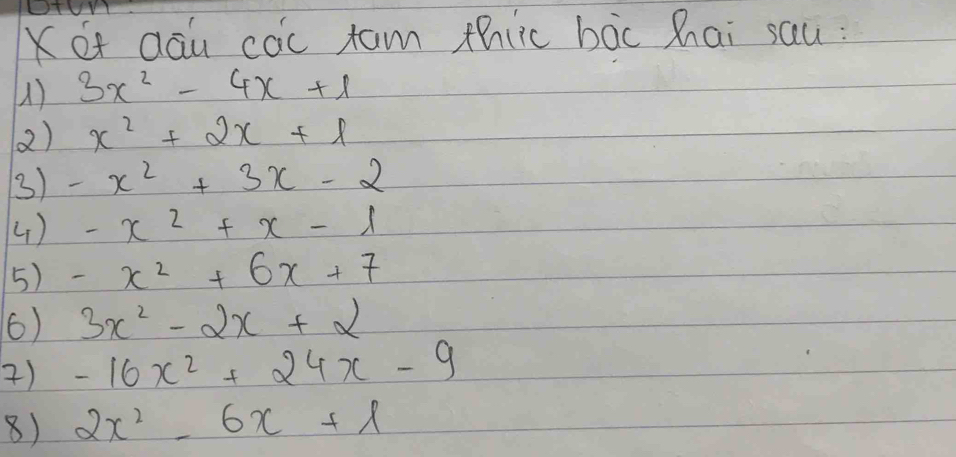 Xét dấu các tam thức bậc hai sau:
1) 3x² - 4x + 1
2) x² + 2x + 1
3) - x² + 3x - 2
4) - x² + x - 1
5) - x² + 6x + 7
6) 3x² - 2x + 2
7) - 16x² + 24x - 9
8) 2x² - 6x + 1